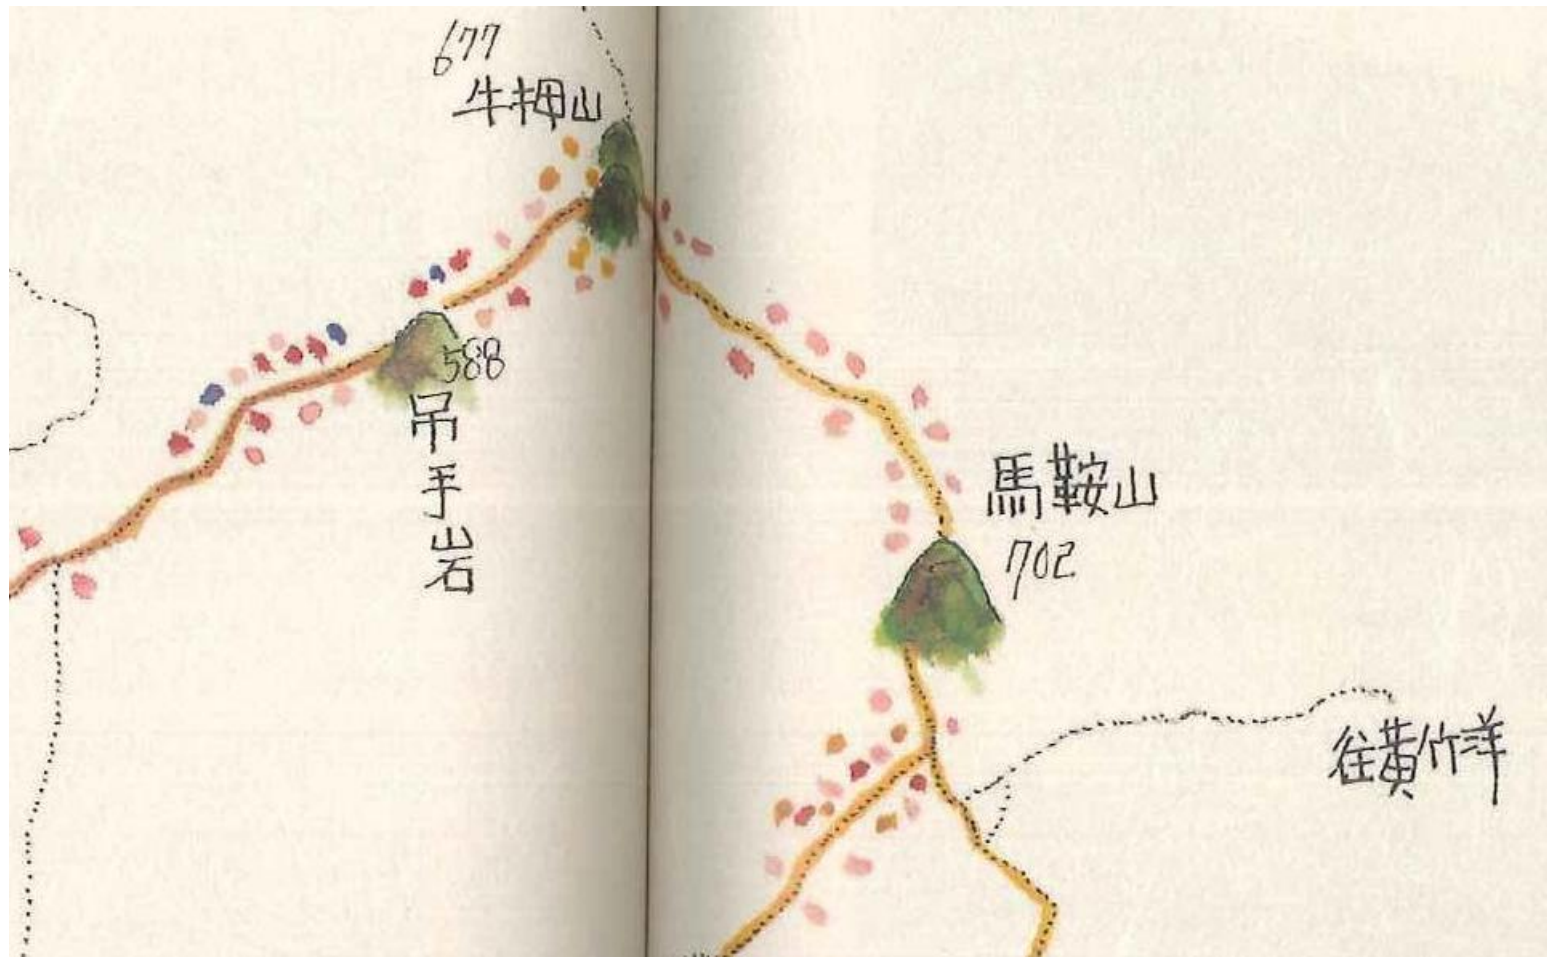 677
牛押山
588
吊手岩
馬鞍山
702
往黃竹洋